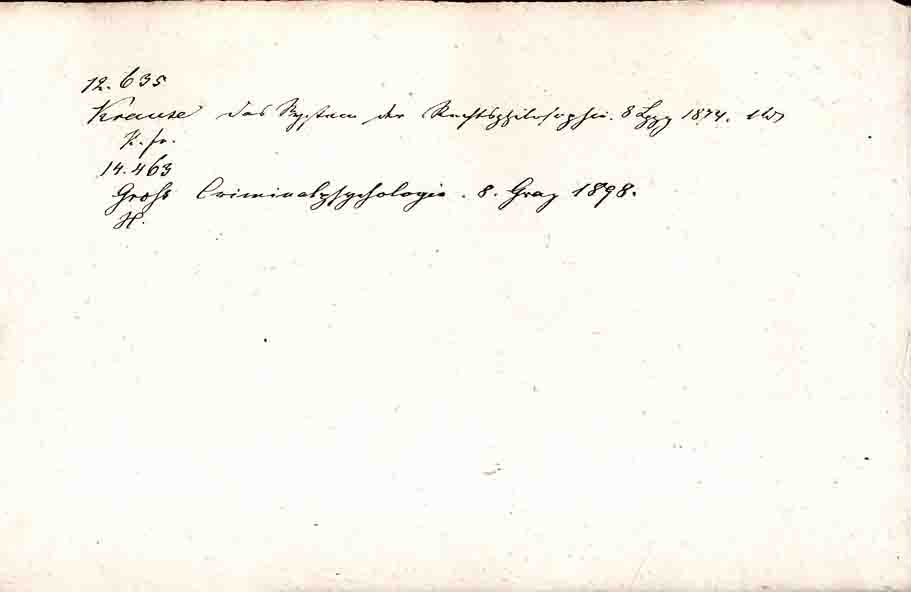 12.635
Krause das System der Rechtsphilosophie. 8 Lpzg 1874.
K. fr.
14.463
Groß Criminalpsychologie. 8. Graz 1898.
H.